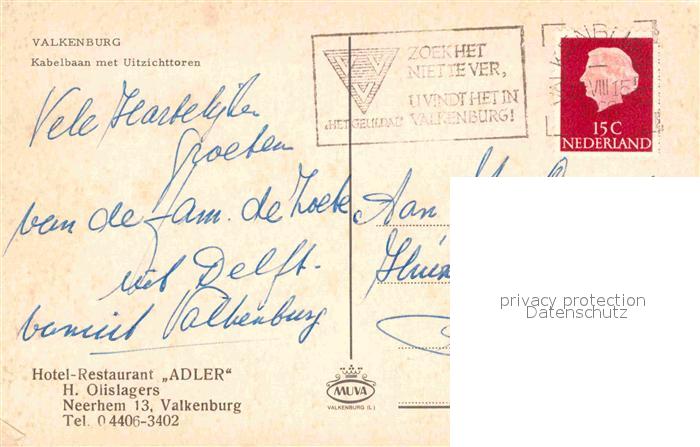 VALKENBURG
Kabelbaan met Uitzichttoren
Vele Hartelijke
groeten
van de fam. de
uit Delft.
vanuit Valkenburg
Hotel-Restaurant „ADLER“
H. Olislagers
Neerhem 13, Valkenburg
Tel. 0 4406-3402
ZOEK HET
NIET TE VER,
U VINDT HET IN
„HET GEULDAL” VALKENBURG!
VIII
15 C
NEDERLAND
Aan
privacy protection
Datenschutz
MUVA
VALKENBURG (L.)